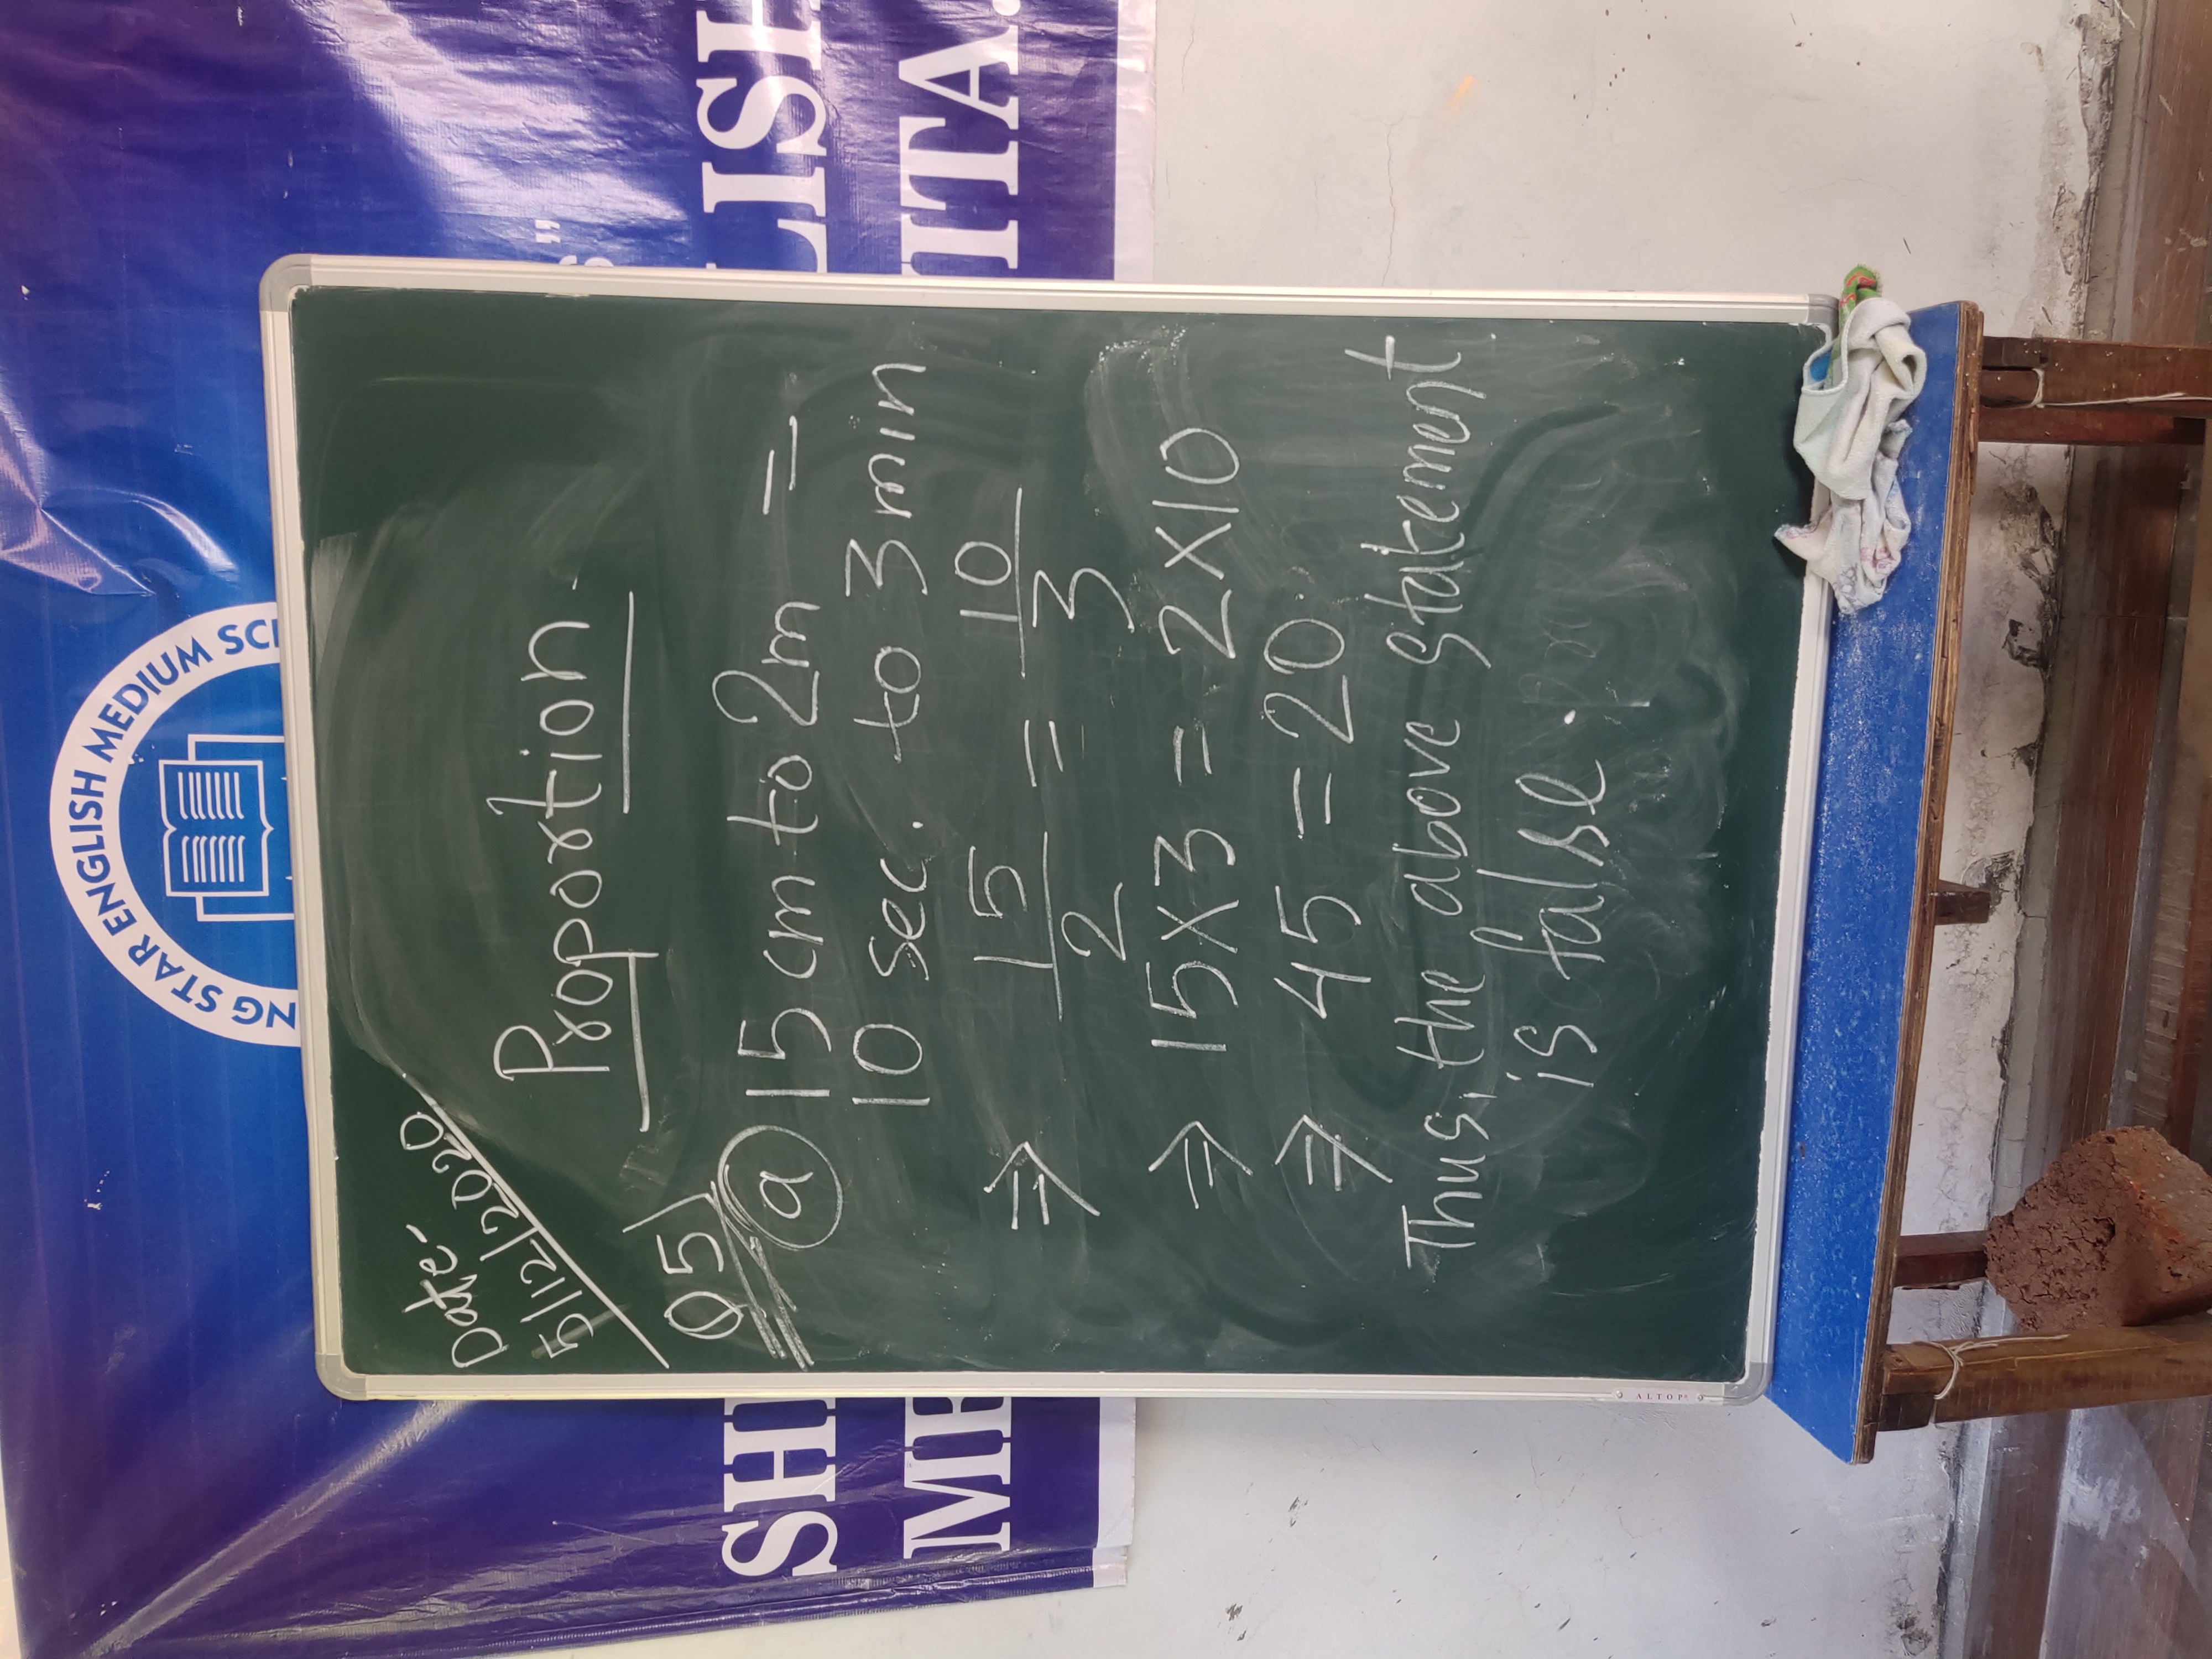 "
LISH
ITA.
NG STAR ENGLISH MEDIUM SC
SH
ME
Date-
5/12/2020
Proportion-
Q5)
(a) 15 cm to 2m =
10 sec. to 3 min
⇒ 15/2 = 10/3
⇒ 15×3 = 2×10
⇒ 45 = 20
Thus, the above statement
is false.
ALTOP